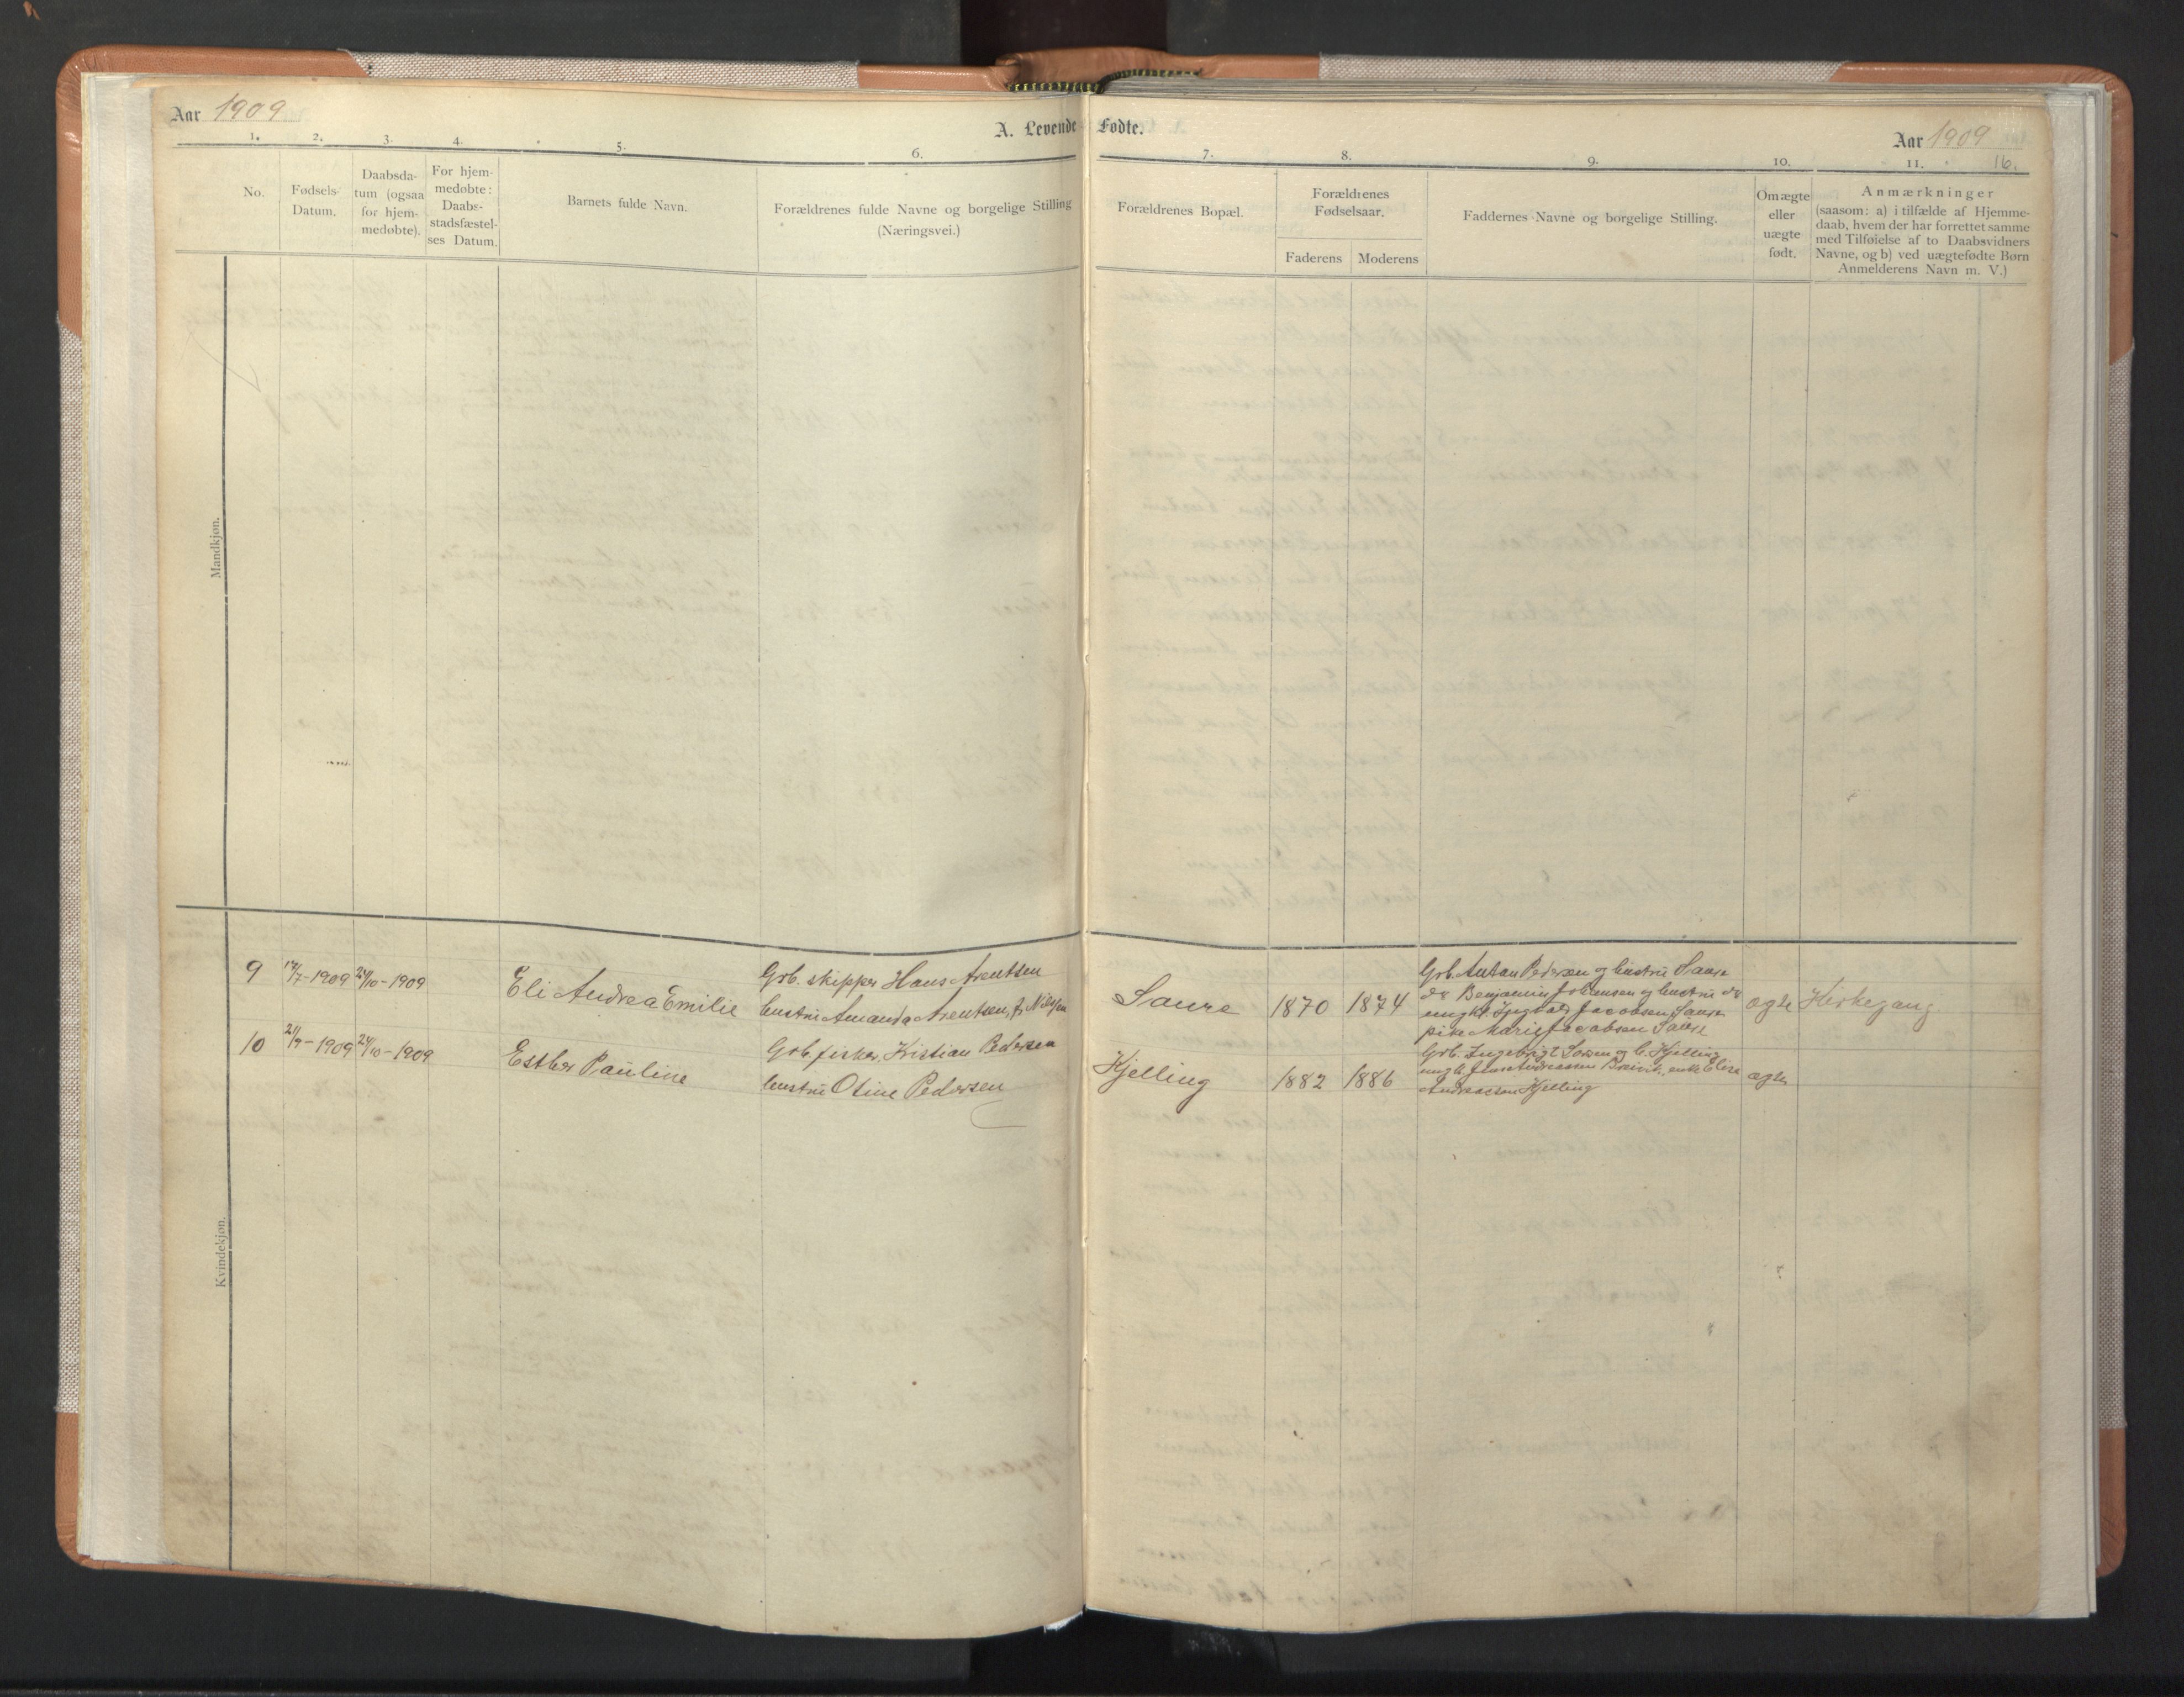 Aar 1909
A. Levende Fødte.
Aar 1909
1. 2. 3. 4. 5. 6. 7. 8. 9. 10. 11. 16.
No.
Fødsels-
Datum.
Daabsda-
tum (ogsaa
for hjem-
medøbte).
For hjem-
medøbte:
Daabs-
stadsfæstel-
ses Datum.
Barnets fulde Navn.
Forældrenes fulde Navne og borgelige Stilling
(Næringsvei.)
Forældrenes Bopæl.
Forældrenes
Fødselsaar.
Faderens
Moderens
Faddernes Navne og borgelige Stilling.
Omægte
eller
uægte
født.
Anmærkninger
(saasom: a) i tilfælde af Hjemme-
daab, hvem der har forrettet samme
med Tilføielse af to Daabsvidners
Navne, og b) ved uægtefødte Børn
Anmelderens Navn m. V.)
Mandkjøn.
Kvindekjøn.
9
/7-1909
24/10-1909
Eli Andrea Emilie
Grb. skipper Hans Arentsen
hustru Amanda Arentsen, f. Nilssen
Saure
1870
1874
Grb. Anton Pedersen og hustru Saure
do Benjamin Johansen og hustru do
ungk. Ingvald Jacobsen Saure
pike Marie Jacobsen Saure
ægte
Kirkegang
10
21/9-1909
24/10-1909
Esther Pauline
Grb. fisker, Kristian Pedersen
hustru Otine Pedersen
Kjelling
1882
1886
Grb. Ingebrigt Larsen og h. Kjelling
ungk. Jens Andreassen Breivik, enke Elise
Andreassen Kjelling
ægte